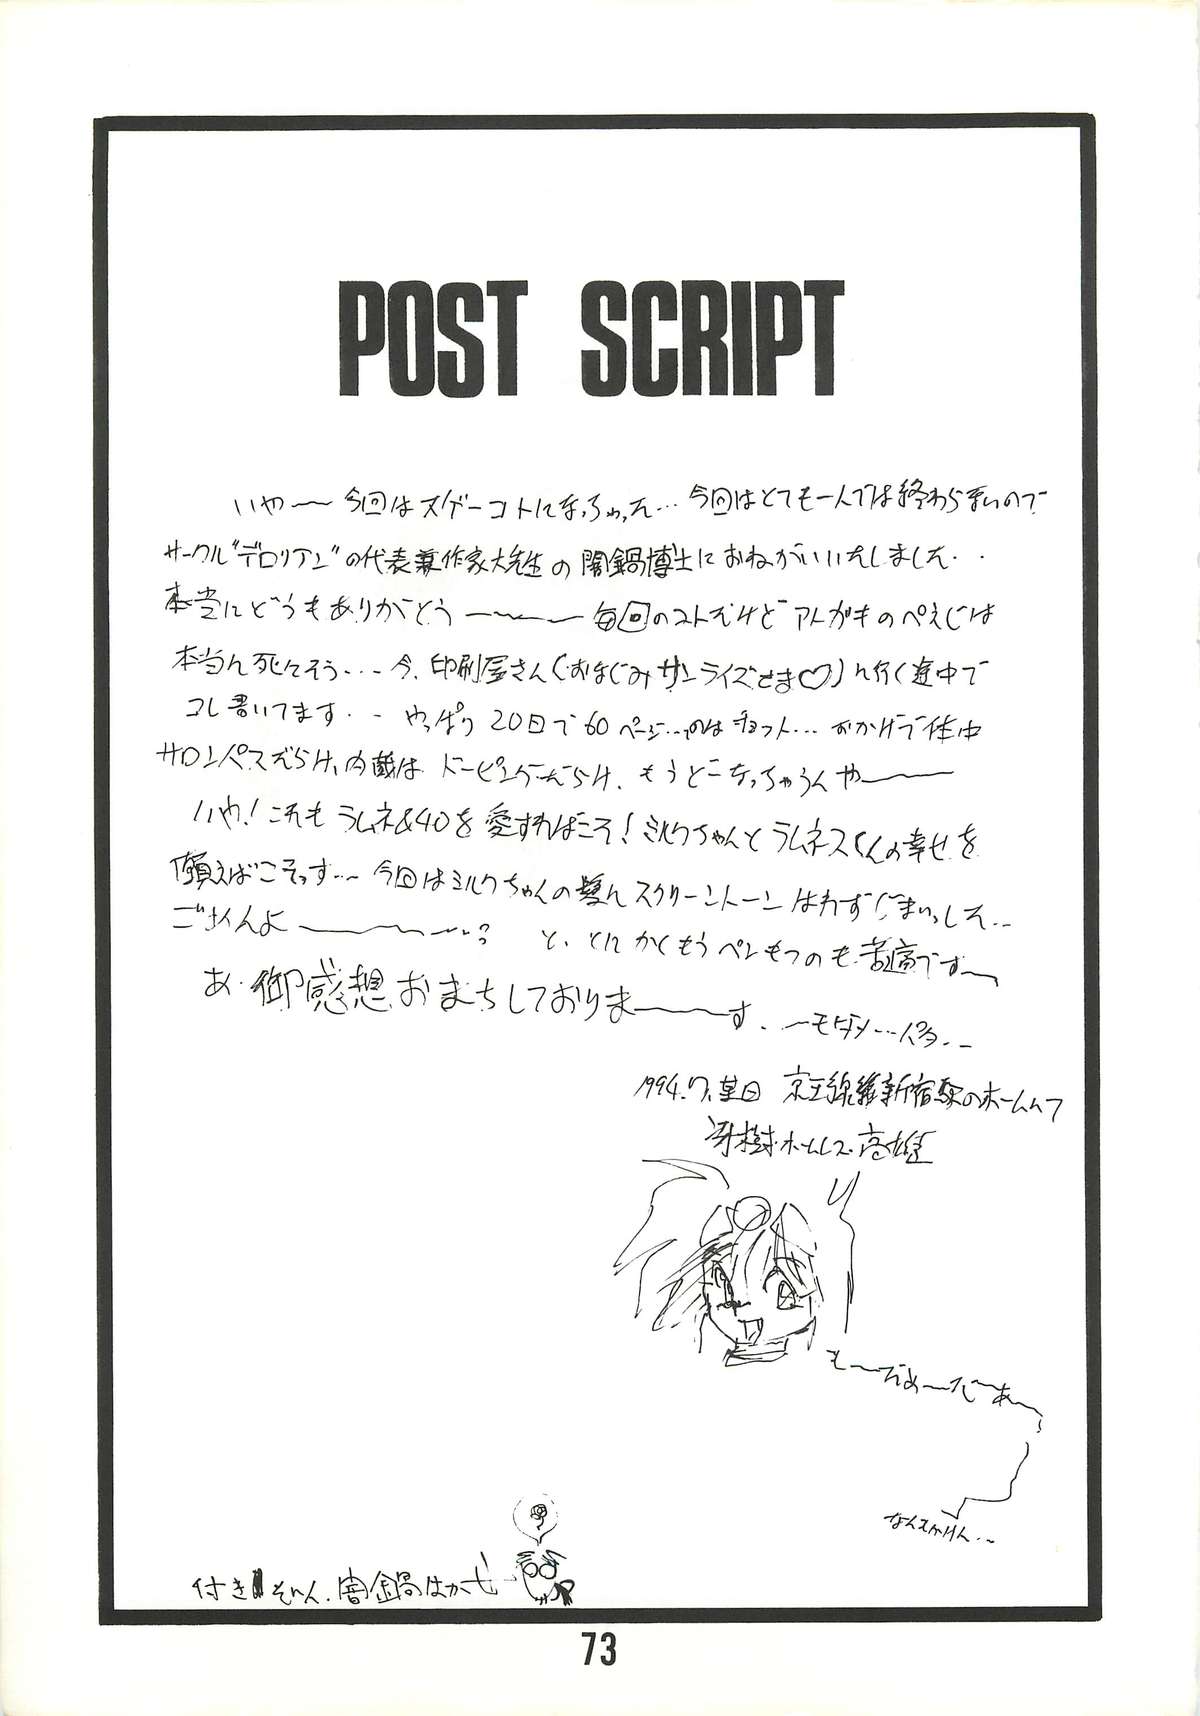 POST SCRIPT
いや〜〜今回はスゲーコトになっちゃった…今回はとても一人では終わらないので
サークル"デロリアン"の代表兼作家大先生の闇鍋博士におねがいいたしました・・
本当にどうもありがとう〜〜〜毎回のコトだけどアトガキのぺえじは
本当に死にそう・・・今、印刷屋さん(おなじみサンライズさま♡)に行く途中で
コレ書いてます・・やっぱり20日で60ページ…てのはチョット…おかげで体中
サロンパスだらけ、内蔵はドーピングだらけ、もうどーなっちゃうんや〜〜〜
いや!これもラムネ&40を愛すればこそ!ミルクちゃんとラムネスくんの幸せを
願えばこそっす…今回はミルクちゃんの髪にスクリーントーンはれず
ごめんよ〜〜〜? と、とにかくもうペンもつのも苦痛です〜
あ、御感想おまちしておりま〜〜す。
1994.7.某日 京王線 新宿駅のホームにて
冴樹・ホームレス・高雄
も〜だめ〜だ〜あ〜
付き 闇鍋はかせ
73